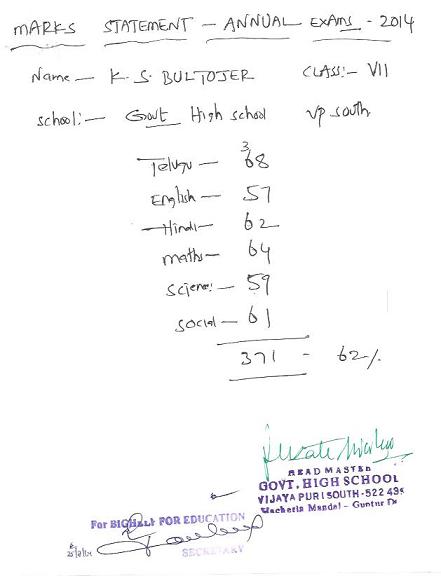 MARKS STATEMENT - ANNUAL EXAMS - 2014
Name - K. S. BULTOJER CLASS:- VII
School:- Govt High school VP South
3
Telugu - 68
English - 57
Hindi - 62
maths - 64
Science: - 59
Social - 61
371 - 62%
HEAD MASTER
GOVT. HIGH SCHOOL
VIJAYA PURI SOUTH - 522 439
Macherla Mandal - Guntur Dt
For BIGHELP FOR EDUCATION
SECRETARY